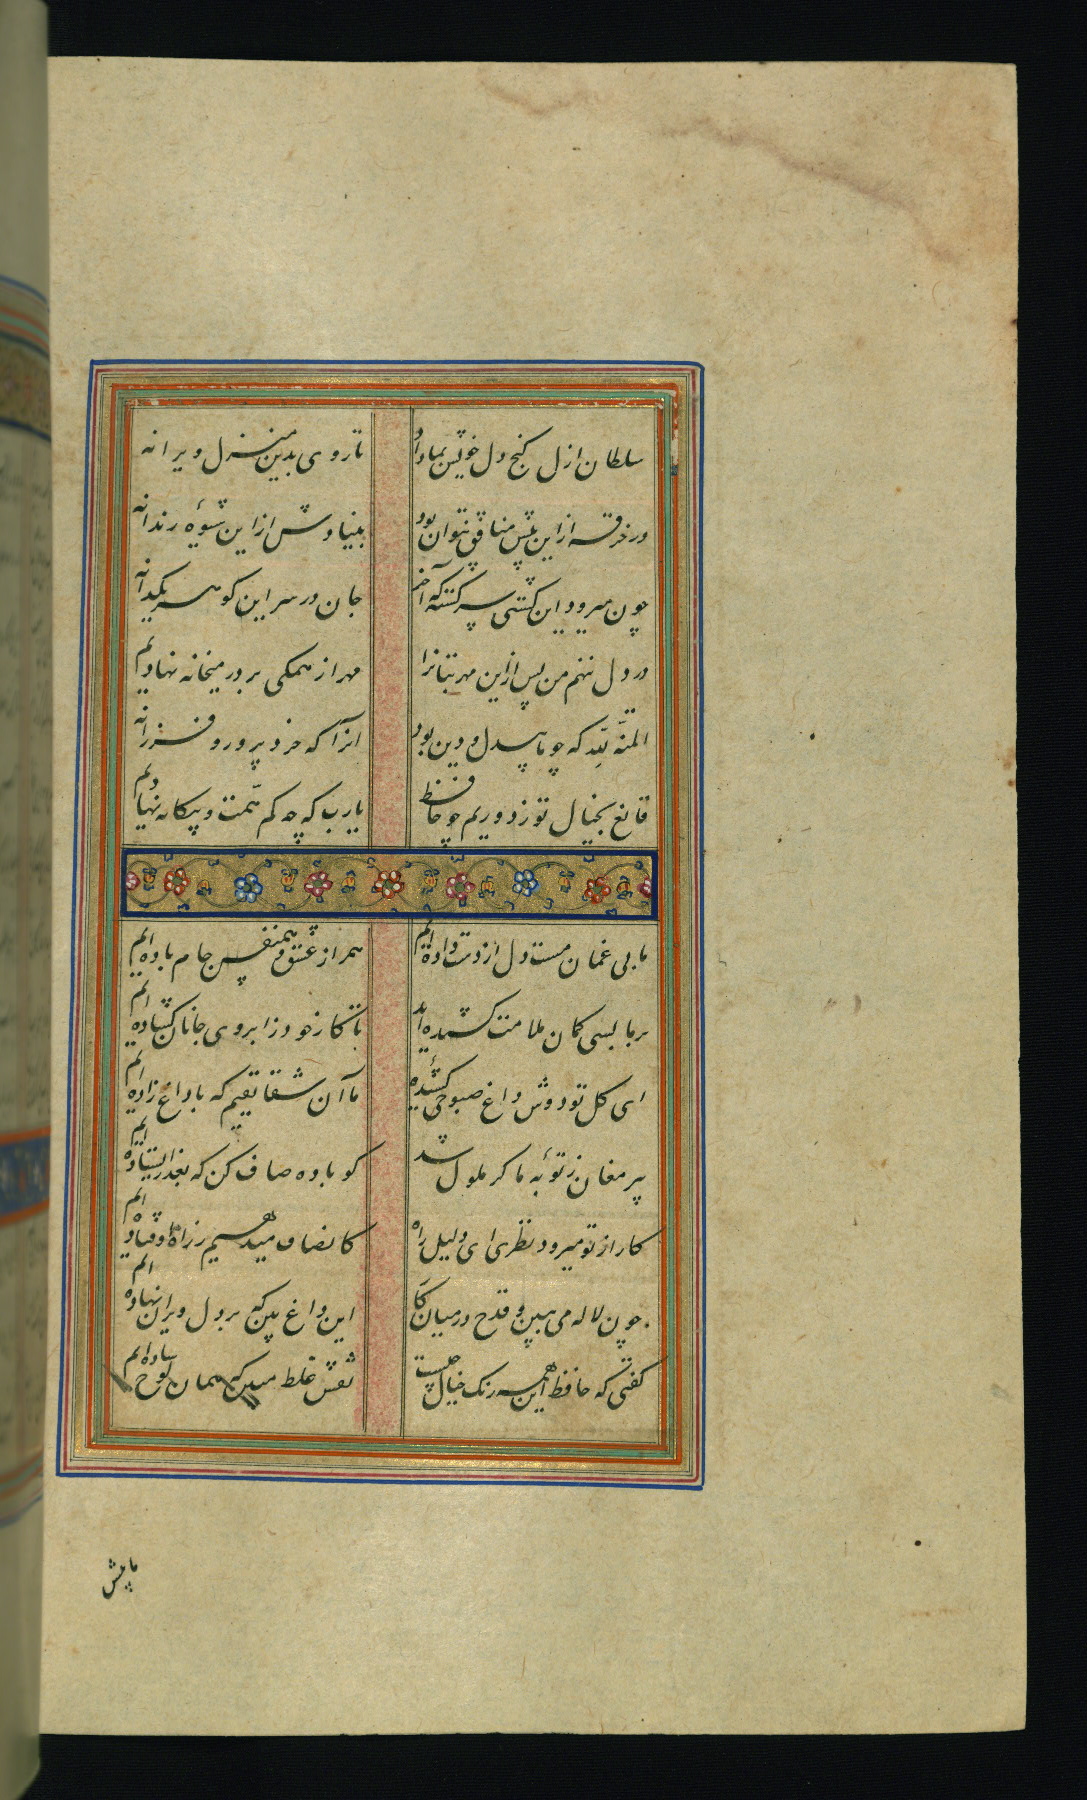 سلطان ازل کنج دل خویش بما داد تا روی بدین منزل ویرانه
در خرقه از این پیش منافق نتوان بود بنیادش از این شیوهٔ رندانه
چون میرود این کشتی سرکشته که آخر جان در سر این کوهر یکدانه
در دل ننهم من پس از این مهر بتانرا مهر از همکی بر در میخانه نهادیم
المنّة لِلّه که چو ما بیدل و دین بود انرا که خرد پرور و فرزانه
قانع بخیال تو زدوریم چو حافظ یارب که چه کم همّت و بیکانه نهادیم
ما بی غمان مست دل از دست داده ایم همراز عشق و همنفس جام باده ایم
بر ما بسی کمان ملامت کشیده اند تا کار خود ز ابروی جانان کشاده ایم
ای کل تو دوش داغ صبوحی کشیدهٔ ما آن شقایقیم که با داغ زاده ایم
پیر مغان ز توبهٔ ما کر ملول شد کو باده صاف کن که بعذر ایستاده ایم
کار از تو میرود نظری ای دلیل راه کانصاف میدهیم ز راه اوفتاده ایم
چون لاله می مبین و قدح در میان کار این داغ بین که بر دل ویران نهاده ایم
کفتی که حافظ این همه رنک خیال چیست نقش غلط مبین که همان لوح ساده ایم
ما پیش